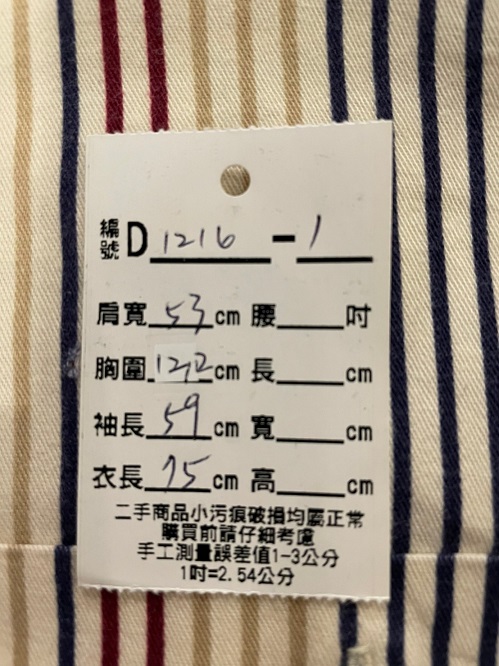 編號D 1216 - 1
肩寬 53 cm 腰 吋
胸圍 122 cm 長 cm
袖長 59 cm 寬 cm
衣長 75 cm 高 cm
二手商品小污痕破損均屬正常
購買前請仔細考慮
手工測量誤差值1-3公分
1吋=2.54公分